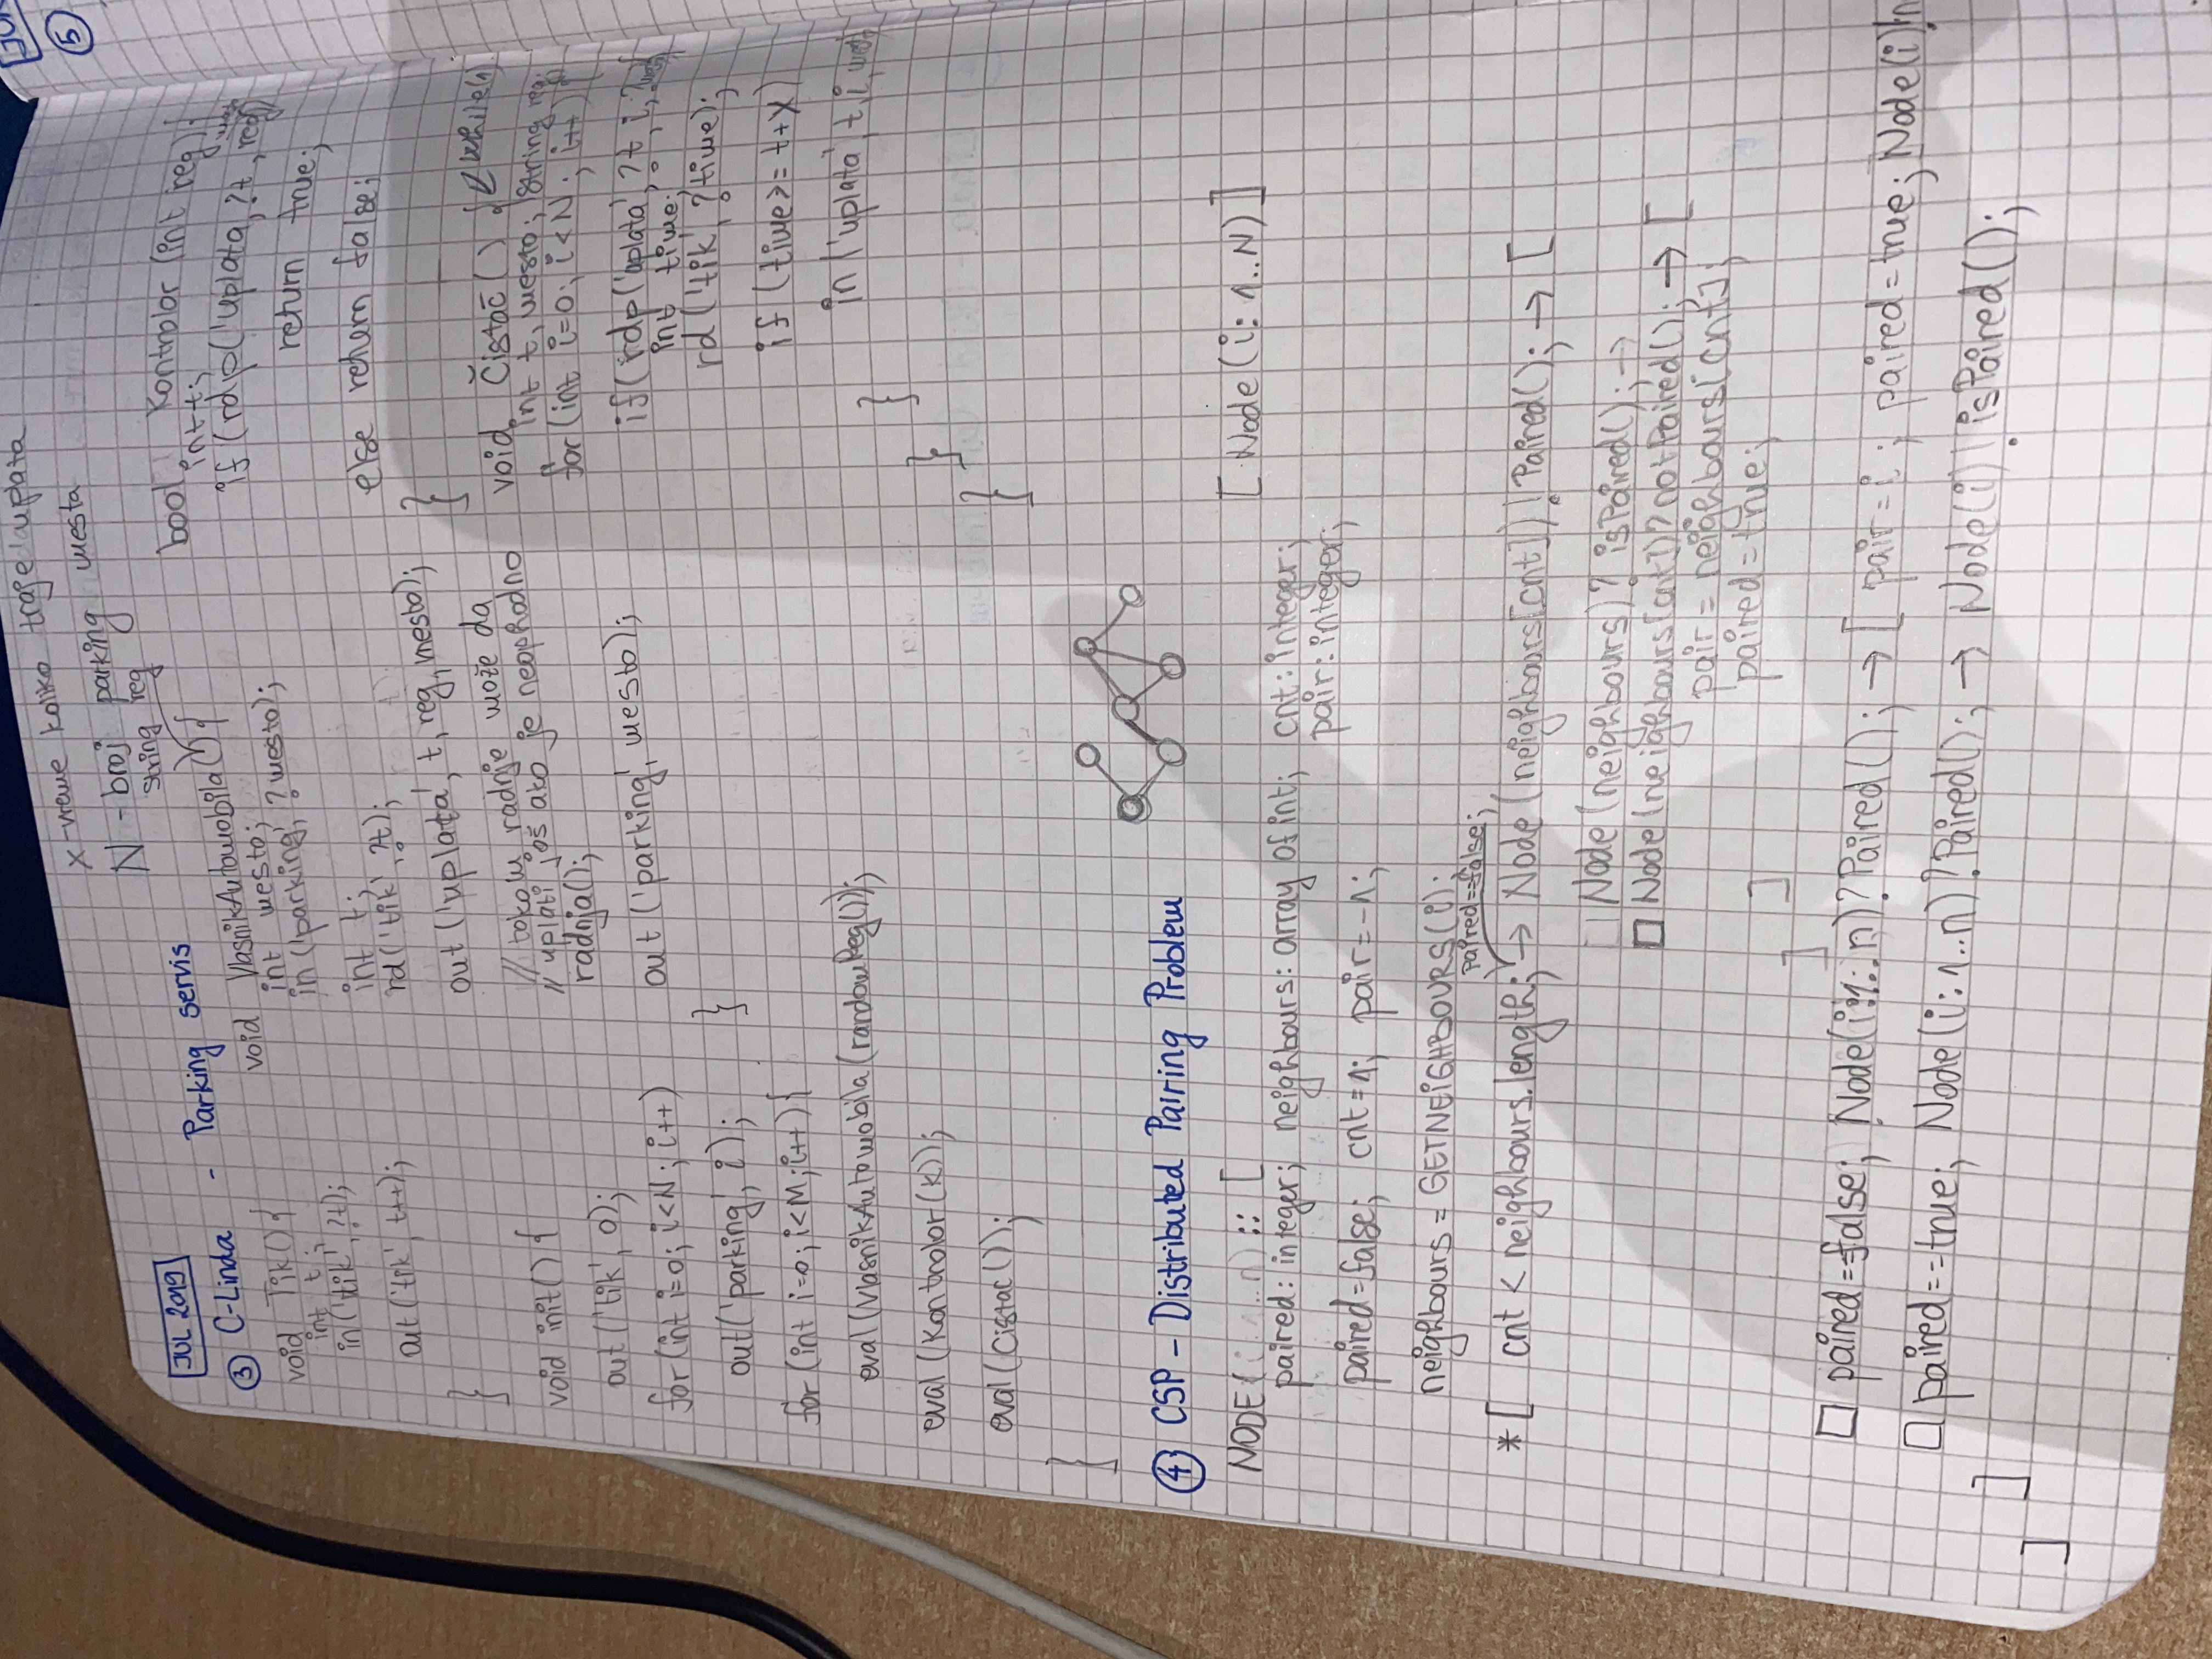 x - vreme koliko traje uplata
N - broj parking mesta
JUL 2019
③ C-Linda - Parking servis
void Tik() {
int t;
in('tik', ?t);
out('tik', t++);
}
void init() {
out('tik', 0);
for (int i=0; i<N; i++)
out('parking', i);
for (int i=0; i<M; i++) {
eval(VlasnikAutomobila(randomReg());
eval(Kontrolor(k));
eval(Cistac());
}
string reg
void VlasnikAutomobila() {
int mesto;
in('parking', ?mesto);
int t;
rd('tik', ?t);
out('uplata', t, reg, mesto);
// tokom radnje može da
// uplati još ako je neophodno
radnja();
out('parking', mesto);
}
bool Kontrolor(int reg) {
int t;
if (rdp('uplata, ?t, reg
return true;
else return false;
}
void Čistač() { while(1)
int t, mesto; string reg;
for (int i=0; i<N; i++) {
if (rdp('uplata', ?t, i,
int time;
rd('tik', ?time);
if (time >= t+X)
in('uplata', t, i,
}
}
}
④ CSP - Distributed Pairing Problem
NODE(i:1..n) :: [
[Node(i: 1..N)]
paired: integer; neighbours: array of int; cnt: integer;
pair: integer;
paired=false; cnt=1; pair=-1;
neighbours = GETNEIGHBOURS(i);
paired==false;
*[ cnt < neighbours.length; → Node(neighbours[cnt])!Paired(); → [
Node(neighbours)? isPaired(); →
□ Node(neighbours[cnt])?notPaired(); → [
pair = neighbours[cnt];
paired = true;
]
]
□ paired==false; Node(i:1..n)?Paired(); → [ pair=i; paired=true; Node(i)!n
□ paired==true; Node(i:1..n)?Paired(); → Node(i)!isPaired();
]
]
⑤